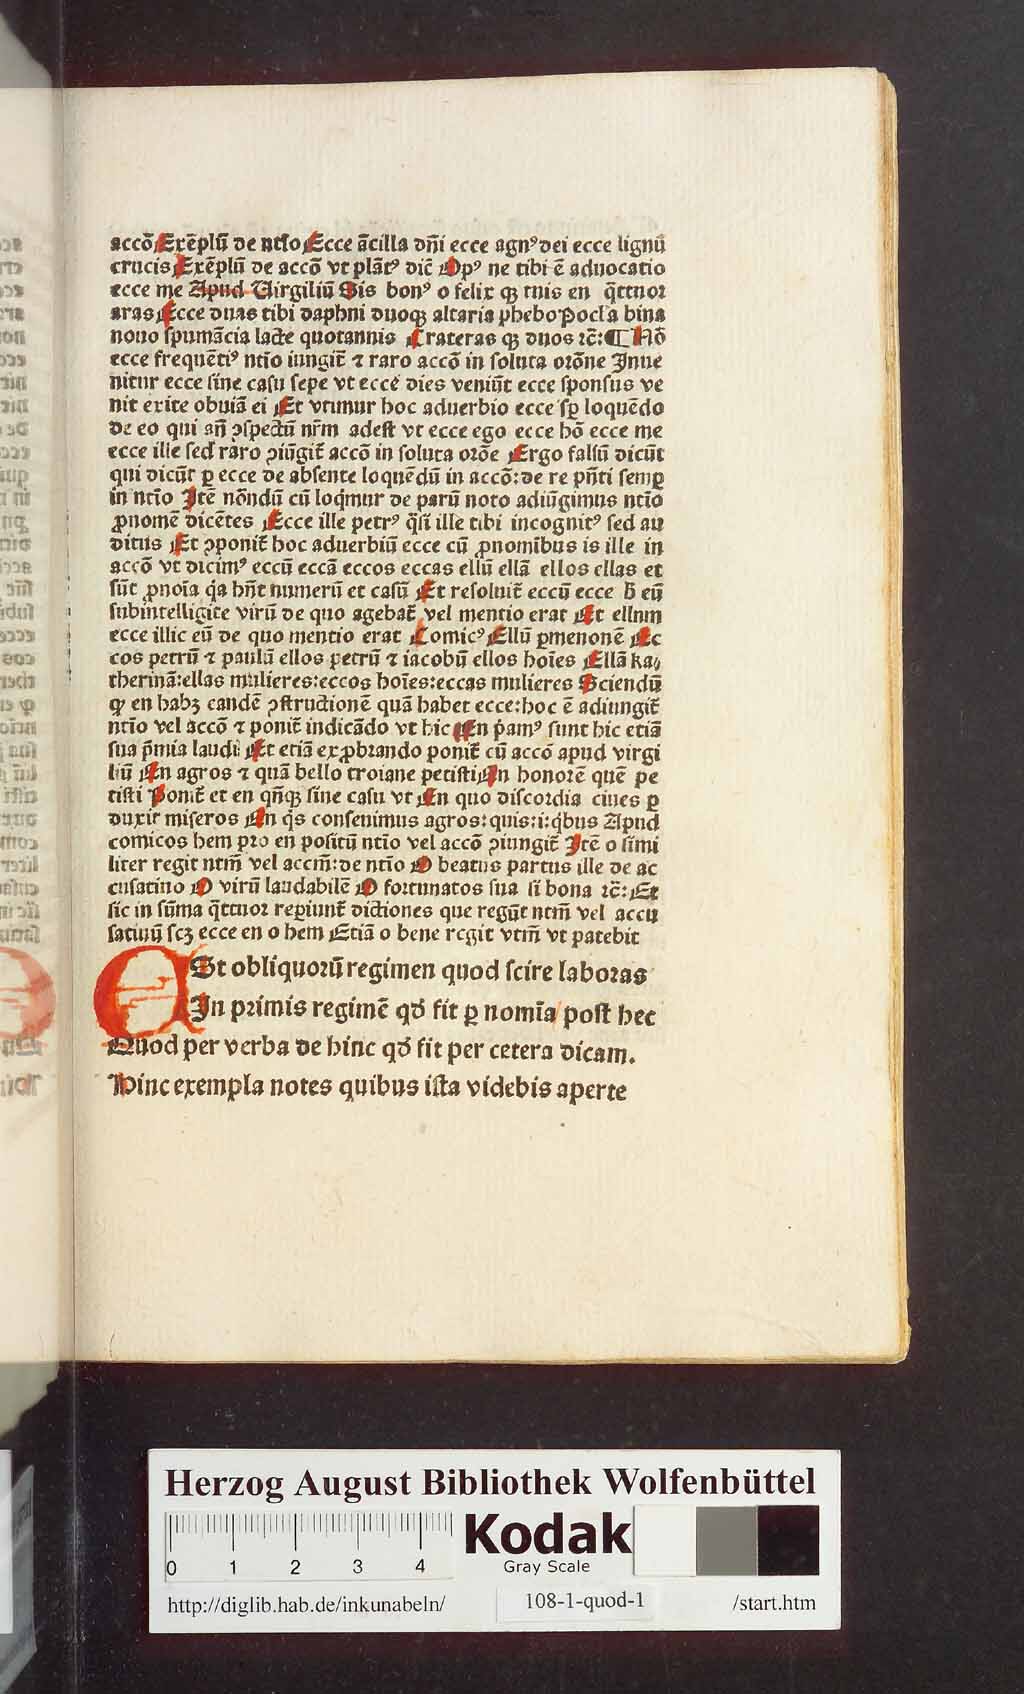 accō Exēplū de ntīo Ecce ācilla dn̄i ecce agnꝰ dei ecce lignū
crucis Exēplū de accō vt plātꝰ dic̄ Opꝰ ne tibi ē aduocatio
ecce me Apud Virgiliū Sis bonꝰ o felix qꝫ tuis en q̄ttuor
aras Ecce duas tibi daphni duoqꝫ altaria phebo Pocl'a bina
nouo spumācia lacte quotannis Crateras qꝫ duos ꝛc̄: ¶ Nō
ecce frequētiꝰ ntīo iungit̄ ⁊ raro accō in soluta orōne Inue
nitur ecce sine casu sepe vt ecce dies veniūt ecce sponsus ve
nit exite obuiā ei Et vtimur hoc aduerbio ecce sꝑ loquēdo
de eo qui an̄ ꝯspectū nr̄m adest vt ecce ego ecce hō ecce me
ecce ille sed raro ꝯiūgit̄ accō in soluta orōe Ergo falsū dicūt
qui dicūt ꝑ ecce de absente loquēdū in accō: de re pn̄ti semꝑ
in ntīo Itē nōndū cū loq̄mur de parū noto adiūgimus ntīo
ꝓnomē dicētes Ecce ille petrꝰ q̄si ille tibi incognitꝰ sed au
ditus Et ꝯponit̄ hoc aduerbiū ecce cū ꝓnomībus is ille in
accō vt dicimꝰ eccū eccā eccos eccas ellū ellā ellos ellas et
sūt ꝓnoīa q̄a hn̄t numerū et casū Et resoluit̄ eccū ecce eū
subintelligite virū de quo agebat̄ vel mentio erat Et ellum
ecce illic eū de quo mentio erat Comicꝰ Ellū ꝑmenonē Ec
cos petrū ⁊ paulū ellos petrū ⁊ iacobū ellos hoīes Ellā ka
therinā: ellas mulieres: eccos hoīes: eccas mulieres Sciendū
qꝫ en habꝫ eandē ꝯstructionē quā habet ecce: hoc ē adiungit̄
ntīo vel accō ⁊ ponit̄ indicādo vt hic En p̄amꝰ sunt hic etiā
sua p̄mia laudi Et etiā exꝓbrando ponit̄ cū accō apud virgi
liū En agros ⁊ quā bello troiane petisti En honorē quē pe
tisti Ponit̄ et en qn̄qꝫ sine casu vt En quo discordia ciues ꝑ
duxit miseros En q̄s consenimus agros: quis: i: q̄bus Apud
comicos hem pro en positū ntīo vel accō ꝯiungit̄ Itē o simi
liter regit ntm̄ vel accm̄: de ntīo O beatus partus ille de ac
cusatiuo O virū laudabilē O fortunatos sua si bona ꝛc̄: Et
sic in sūma q̄ttuor reꝑiunt̄ dictiones que regūt ntm̄ vel accu
satiuū scꝫ ecce en o hem Etiā o bene regit vtm̄ vt patebit
ESt obliquorū regimen quod scire laboras
In primis regimē qd̄ fit ꝑ nomīa / post hec
Quod per verba de hinc qd̄ fit per cetera dicam.
Hinc exempla notes quibus ista videbis aperte
Herzog August Bibliothek Wolfenbüttel
0 1 2 3 4
Kodak
Gray Scale
http://diglib.hab.de/inkunabeln/ 108-1-quod-1 /start.htm